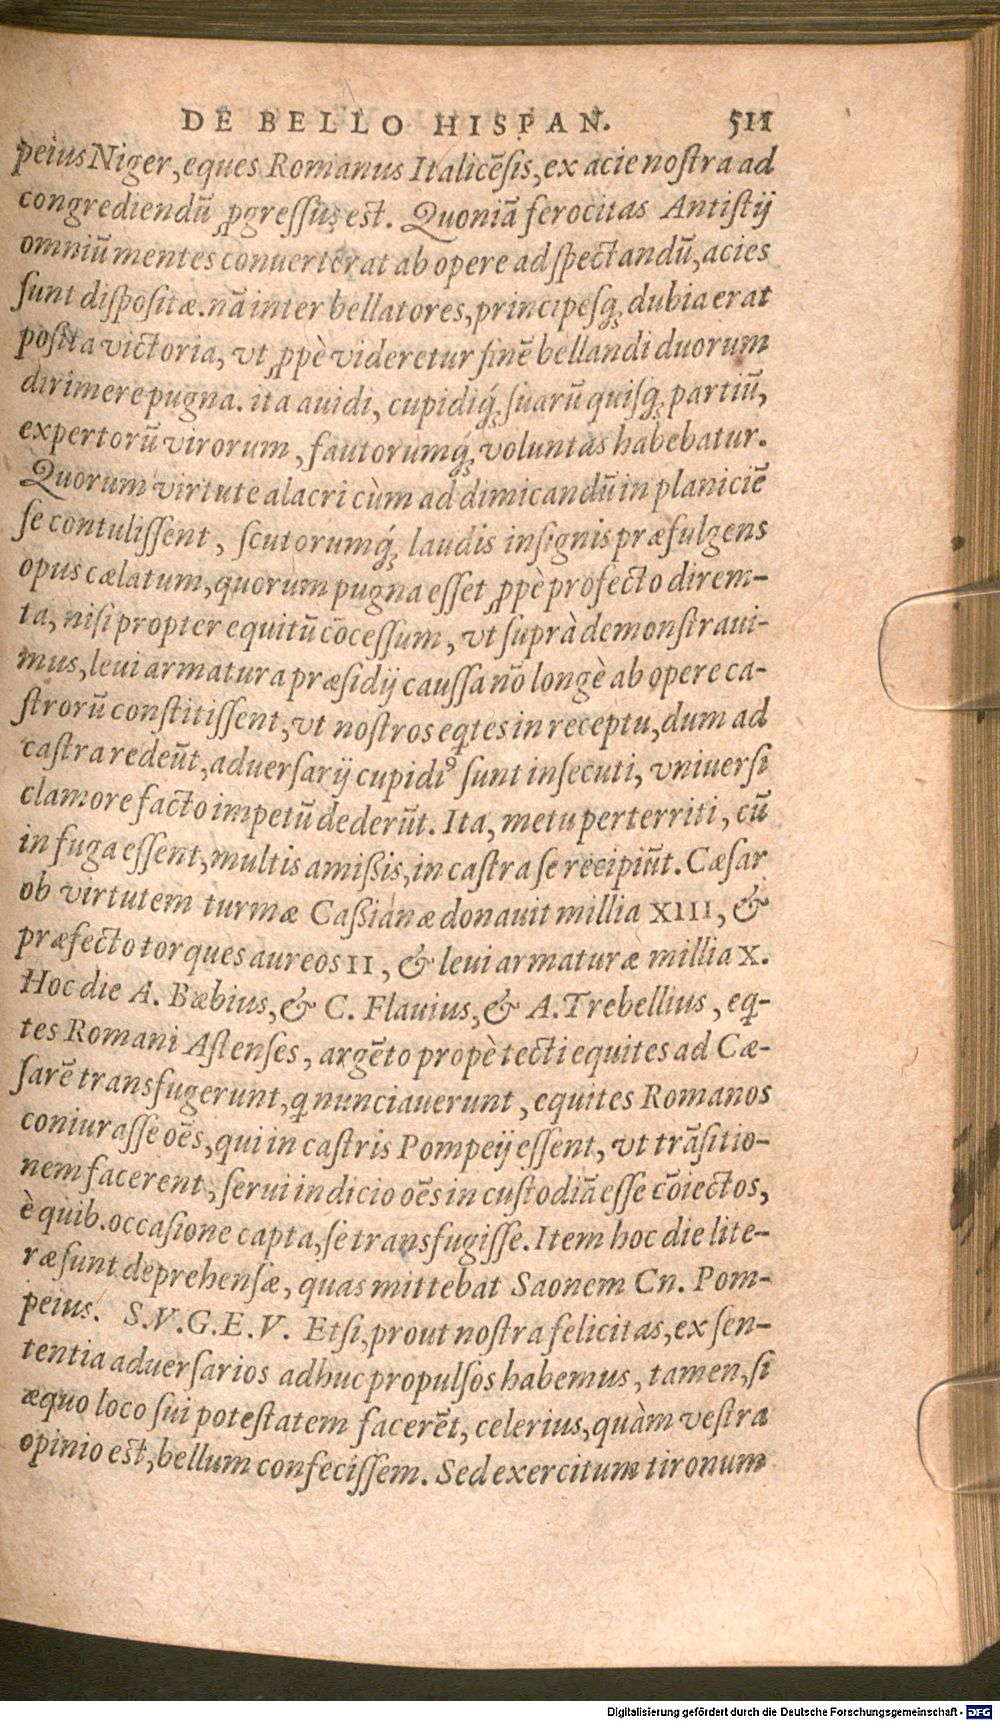 DE BELLO HISPAN. 511
peius Niger, eques Romanus Italicēsis, ex acie nostra ad
congrediendū ꝓgressus est. Quoniā ferocitas Antistij
omniū mentes conuerterat ab opere ad spectandū, acies
sunt dispositæ. nā inter bellatores, principesq́; dubia erat
posita victoria, vt ꝓpè videretur finē bellandi duorum
dirimere pugna. ita auidi, cupidiq́; suarū quisq; partiū,
expertorū virorum, fautorumq́; voluntas habebatur.
Quorum virtute alacri cùm ad dimicandū in planiciē
se contulissent, scutorumq́; laudis insignis præfulgens
opus cælatum, quorum pugna esset ꝓpè profecto direm-
ta, nisi propter equitū cōcessum, vt suprà demonstraui-
mus, leui armatura præsidij caussa nō longè ab opere ca-
strorū constitissent, vt nostros eq̃tes in receptu, dum ad
castra redeūt, aduersarij cupidiꝰ sunt insecuti, vniuersi
clamore facto impetū dederūt. Ita, metu perterriti, cū
in fuga essent, multis amissis, in castra se recipiūt. Cæsar
ob virtutem turmæ Cassianæ donauit millia XIII, &
præfecto torques aureos II, & leui armaturæ millia X.
Hoc die A. Bæbius, & C. Flauius, & A. Trebellius, eq̃-
tes Romani Astenses, argēto propè tecti equites ad Cæ-
sarē transfugerunt, q̃ nunciauerunt, equites Romanos
coniurasse oēs, qui in castris Pompeij essent, vt trāsitio-
nem facerent, serui indicio oēs in custodiā esse cōiectos,
è quib. occasione capta, se transfugisse. Item hoc die lite-
ræ sunt deprehensæ, quas mittebat Saonem Cn. Pom-
peius. S.V.G.E.V. Etsi, prout nostra felicitas, ex sen-
tentia aduersarios adhuc propulsos habemus, tamen, si
æquo loco sui potestatem facerēt, celerius, quàm vestra
opinio est, bellum confecissem. Sed exercitum tironum
Digitalisierung gefördert durch die Deutsche Forschungsgemeinschaft - DFG